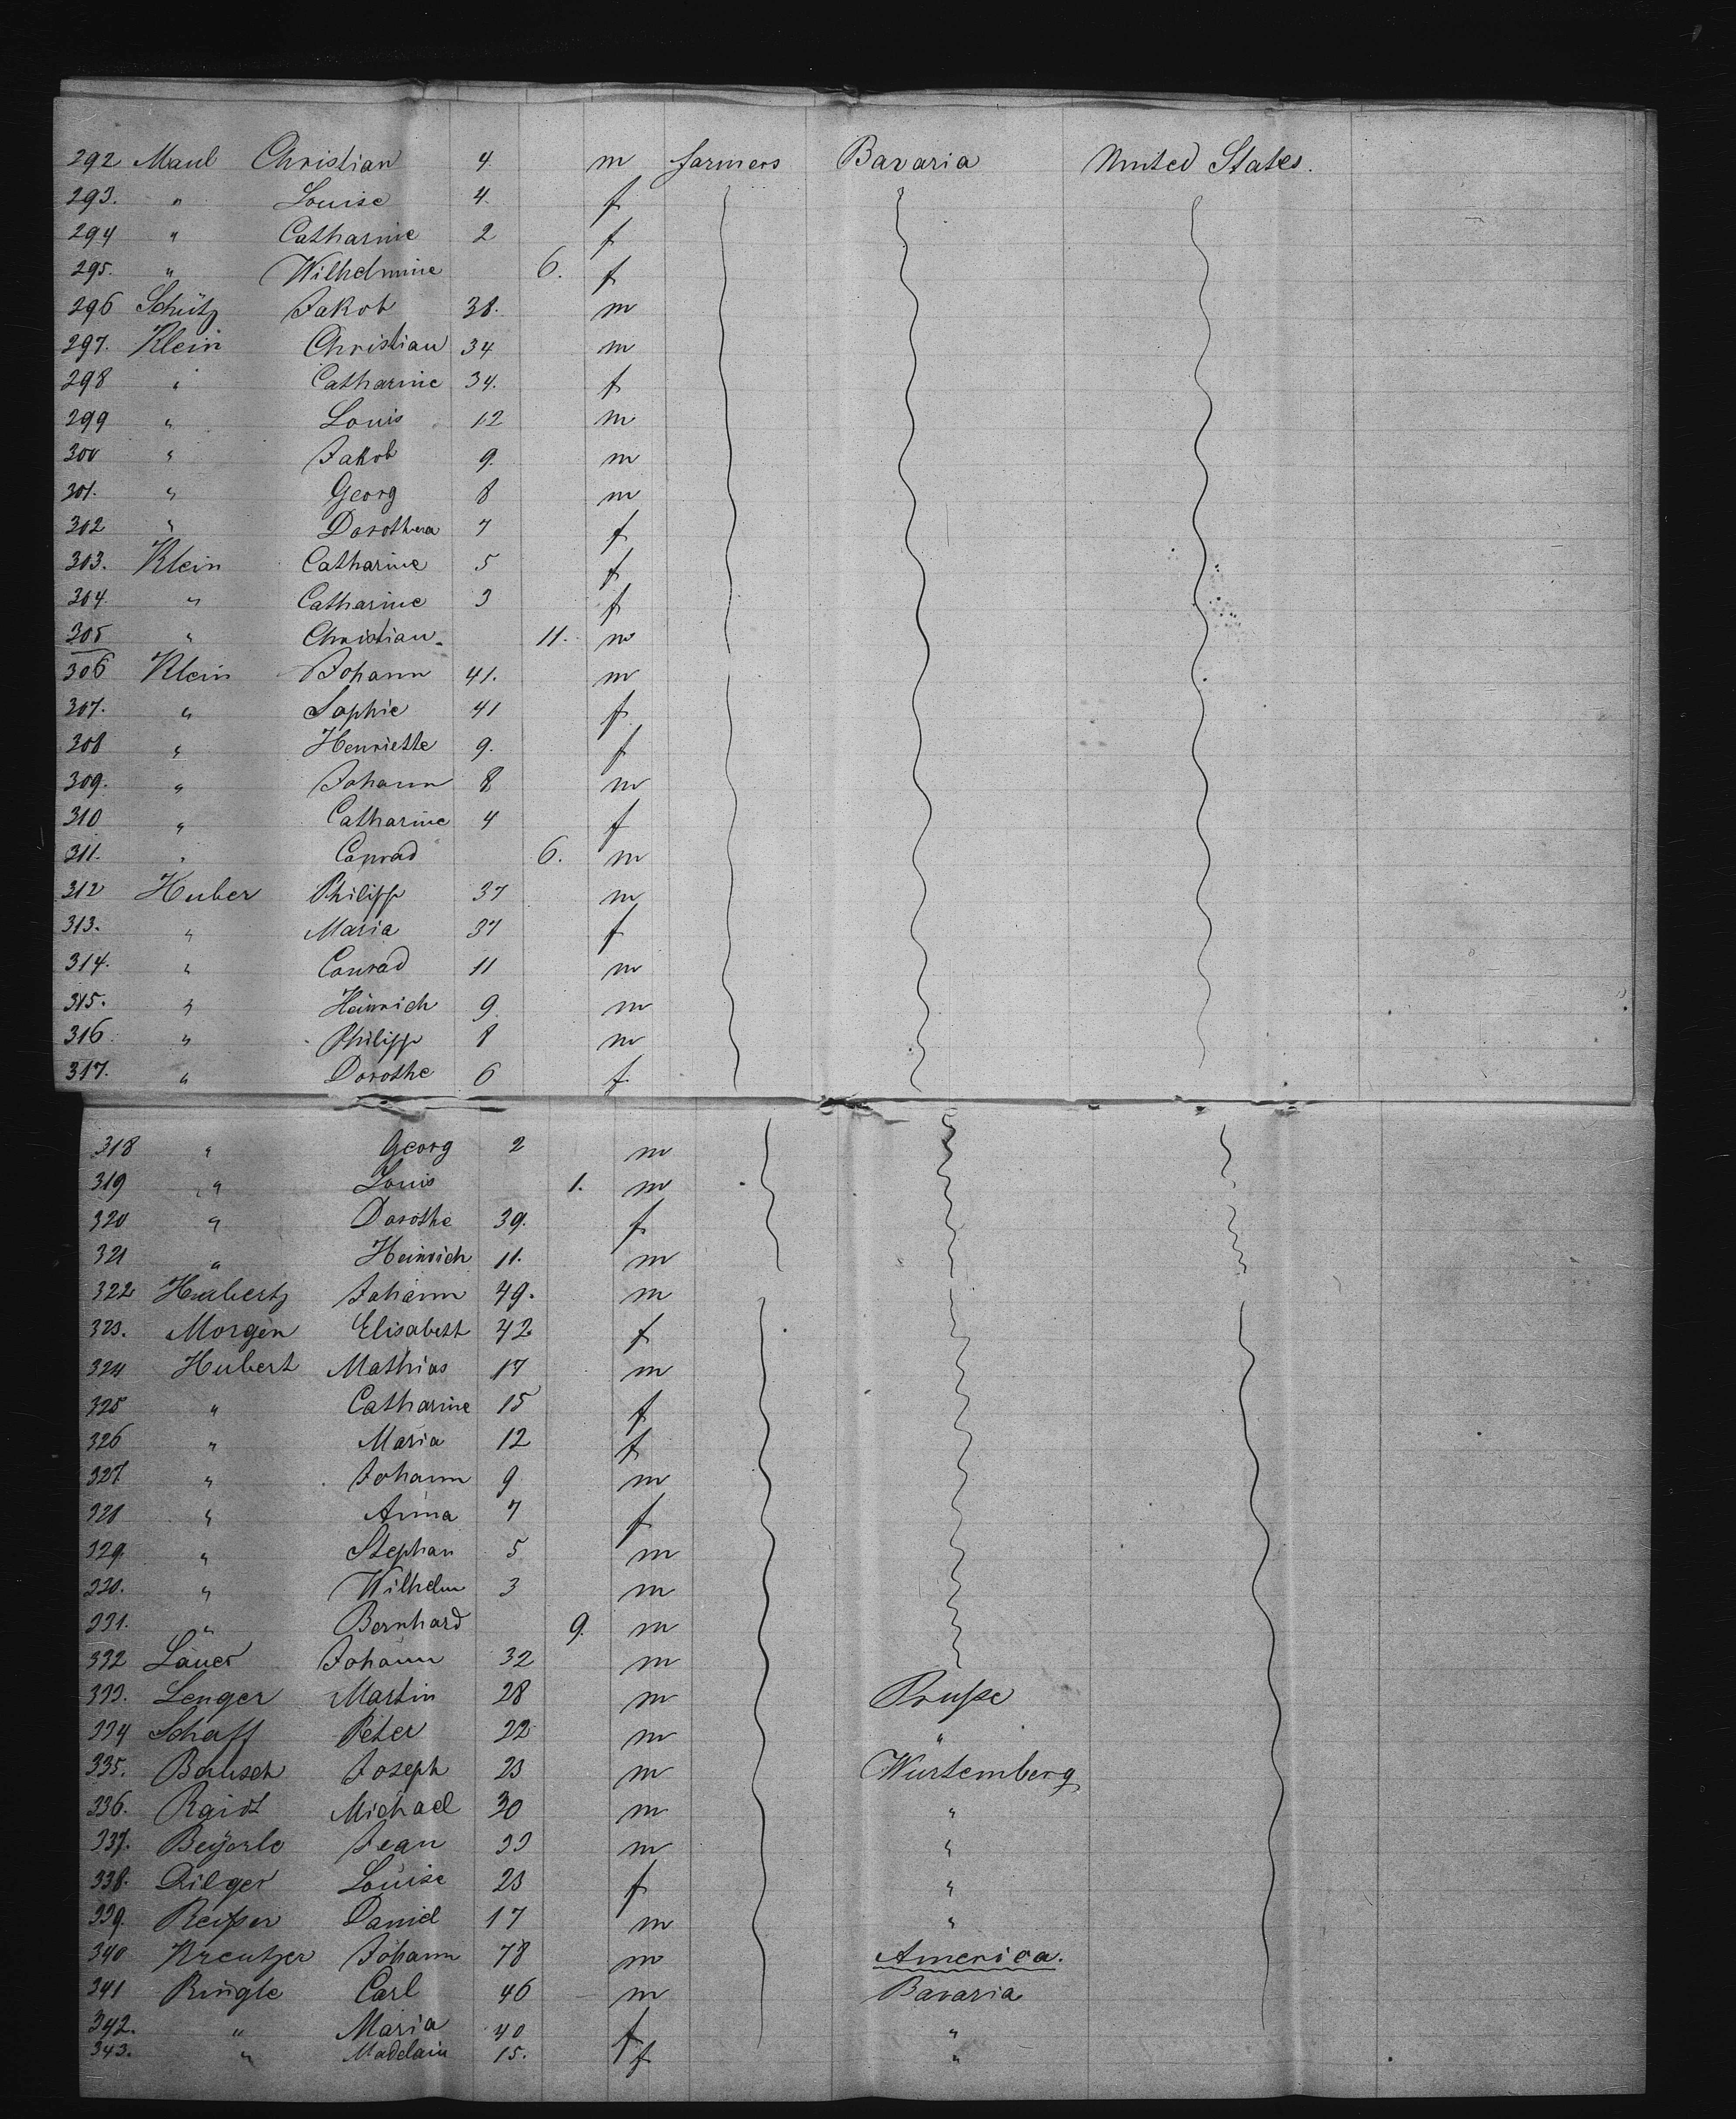 292 Maul Christian 4. m farmers Bavaria United States.
293. " Louise 4. f
294 " Catharine 2 f
295. " Wilhelmine 6. f
296 Schütz Jakob 38. m
297. Klein Christian 34 m
298 " Catharine 34. f
299 " Louis 12 m
300 " Jakob 9. m
301. " Georg 8 m
302 " Dorothea 7 f
303. Klein Catharine 5 f
304. " Catharine 3 f
305 " Christian 11. m
306 Klein Johann 41. m
307. " Sophie 41 f
308 " Henriette 9. f
309. " Johann 8 m
310 " Catharine 4 f
311. " Conrad 6. m
312 Huber Philipp 37 m
313. " Maria 37 f
314. " Conrad 11 m
315. " Heinrich 9. m
316 " Philipp 8 m
317. " Dorothe 6 f
318 " Georg 2 m
319 " Louis 1. m
320 " Dorothe 39. f
321 " Heinrich 11. m
322 Hubertz Johann 49. m
323. Morgen Elisabeth 42 f
324 Hubert Mathias 17 m
325 " Catharine 15 f
326 " Maria 12 f
327 " Johann 9 m
328 " Anna 7 f
329 " Stephan 5 m
330. " Wilhelm 3 m
331. " Bernhard 9. m
332 Lauer Johann 32 m
333. Lenger Martin 28 m Prusse
334 Schaff Peter 22 m "
335. Joseph 23 m Würtemberg
336. Raidt Michael 30 m "
337. Beyerle Jean 33 m "
338. Dilger Louise 23 f "
339. Reisser Daniel 17 m "
340 Kreutzer Johann 78 m America.
341 Ringle Carl 46 m Bavaria
342. " Maria 40 f "
343. " Madelain 15. f "